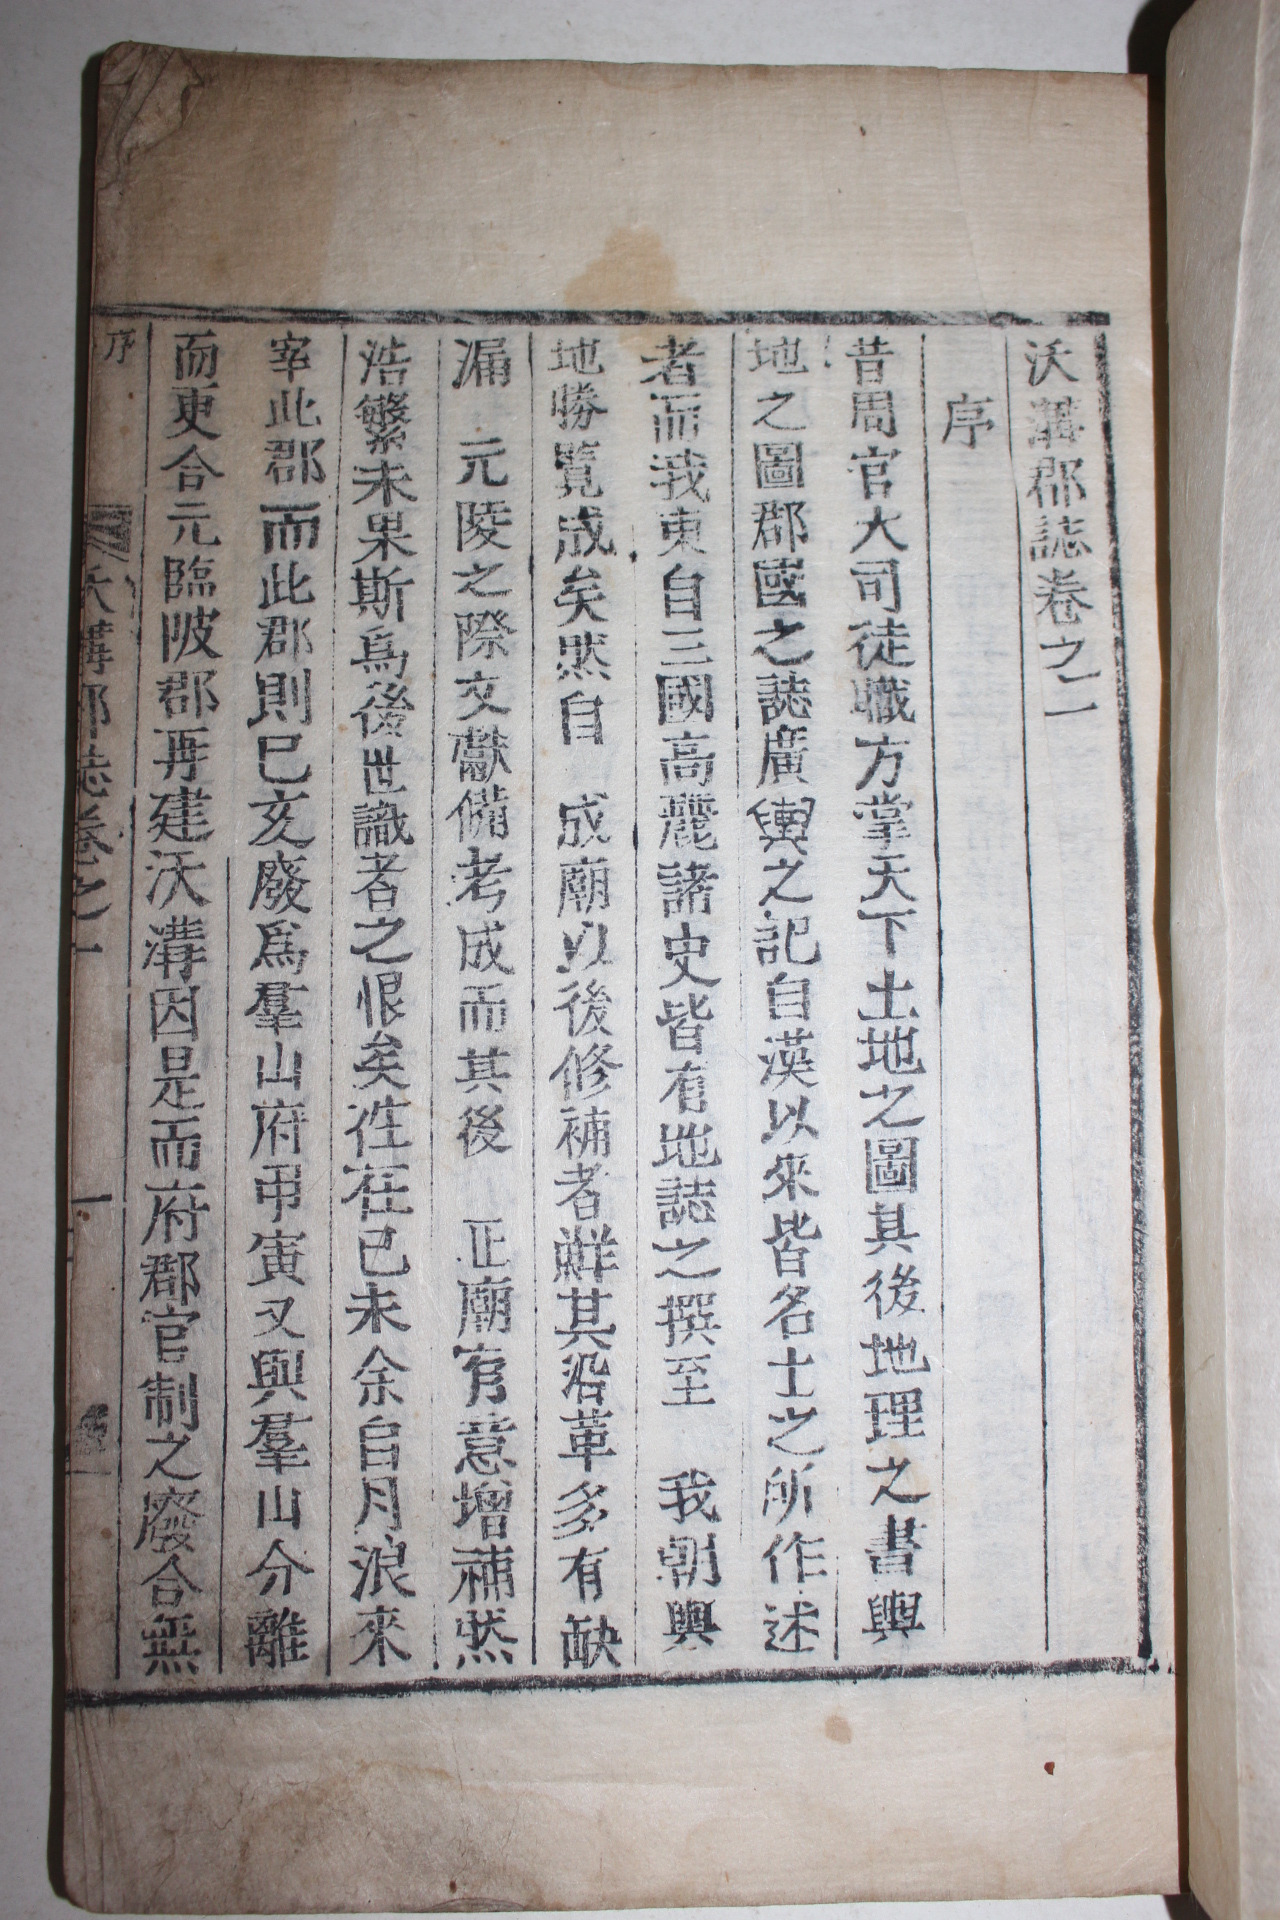 沃溝郡誌卷之一
序
昔周官大司徒職方掌天下土地之圖其後地理之書輿
地之圖郡國之誌廣輿之記自漢以來皆名士之所作述
者而我東自三國高麗諸史皆有地誌之撰至　我朝輿
地勝覽成矣然自　成廟以後修補者鮮其沿革多有缺
漏　元陵之際文獻備考成而其後　正廟有意增補然
浩繁未果斯爲後世識者之恨矣徃在己未余自月浪來
宰此郡而此郡則己亥廢爲羣山府甲寅又與羣山分離
而更合元臨陂郡再建沃溝因是而府郡官制之廢合無
序
沃溝郡誌卷之一
一